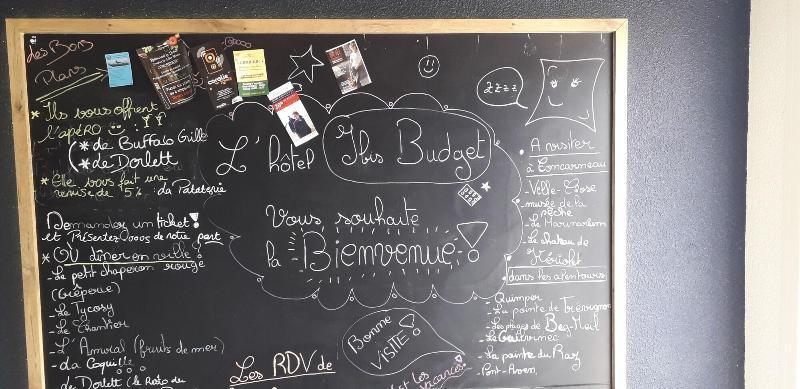 des Bons
Plans
* Ils vous offrent
l'apéRO
(* de Buffalo Grill
* de Dorlett
* Elle vous fait une
remise de 5% : da Pataterie
Demander un ticket !
et Présentez vous de notre part
* OÙ dîner en ville ?
- Le petit chaperon rouge
(Crêperie)
- Le Tycosy
- Le Chantier
- L'Amiral (fruits de mer)
- da Coquille
de Dorlett (le Resto du
L'hôtel Ibis Budget
Vous souhaite
la Bienvenue !
Bonne
VISITE !
Les RDV de
zzzz
A visiter
à Concarneau
- Ville-Close
- musée de la
pêche
- Le Marinarium
- Le chateau de
Kériolet
dans les alentours
- Quimper
- La pointe de Trévignon
- Les plages de Beg-Meil
- Le Guilvinec
- La pointe du Raz
- Pont-Aven